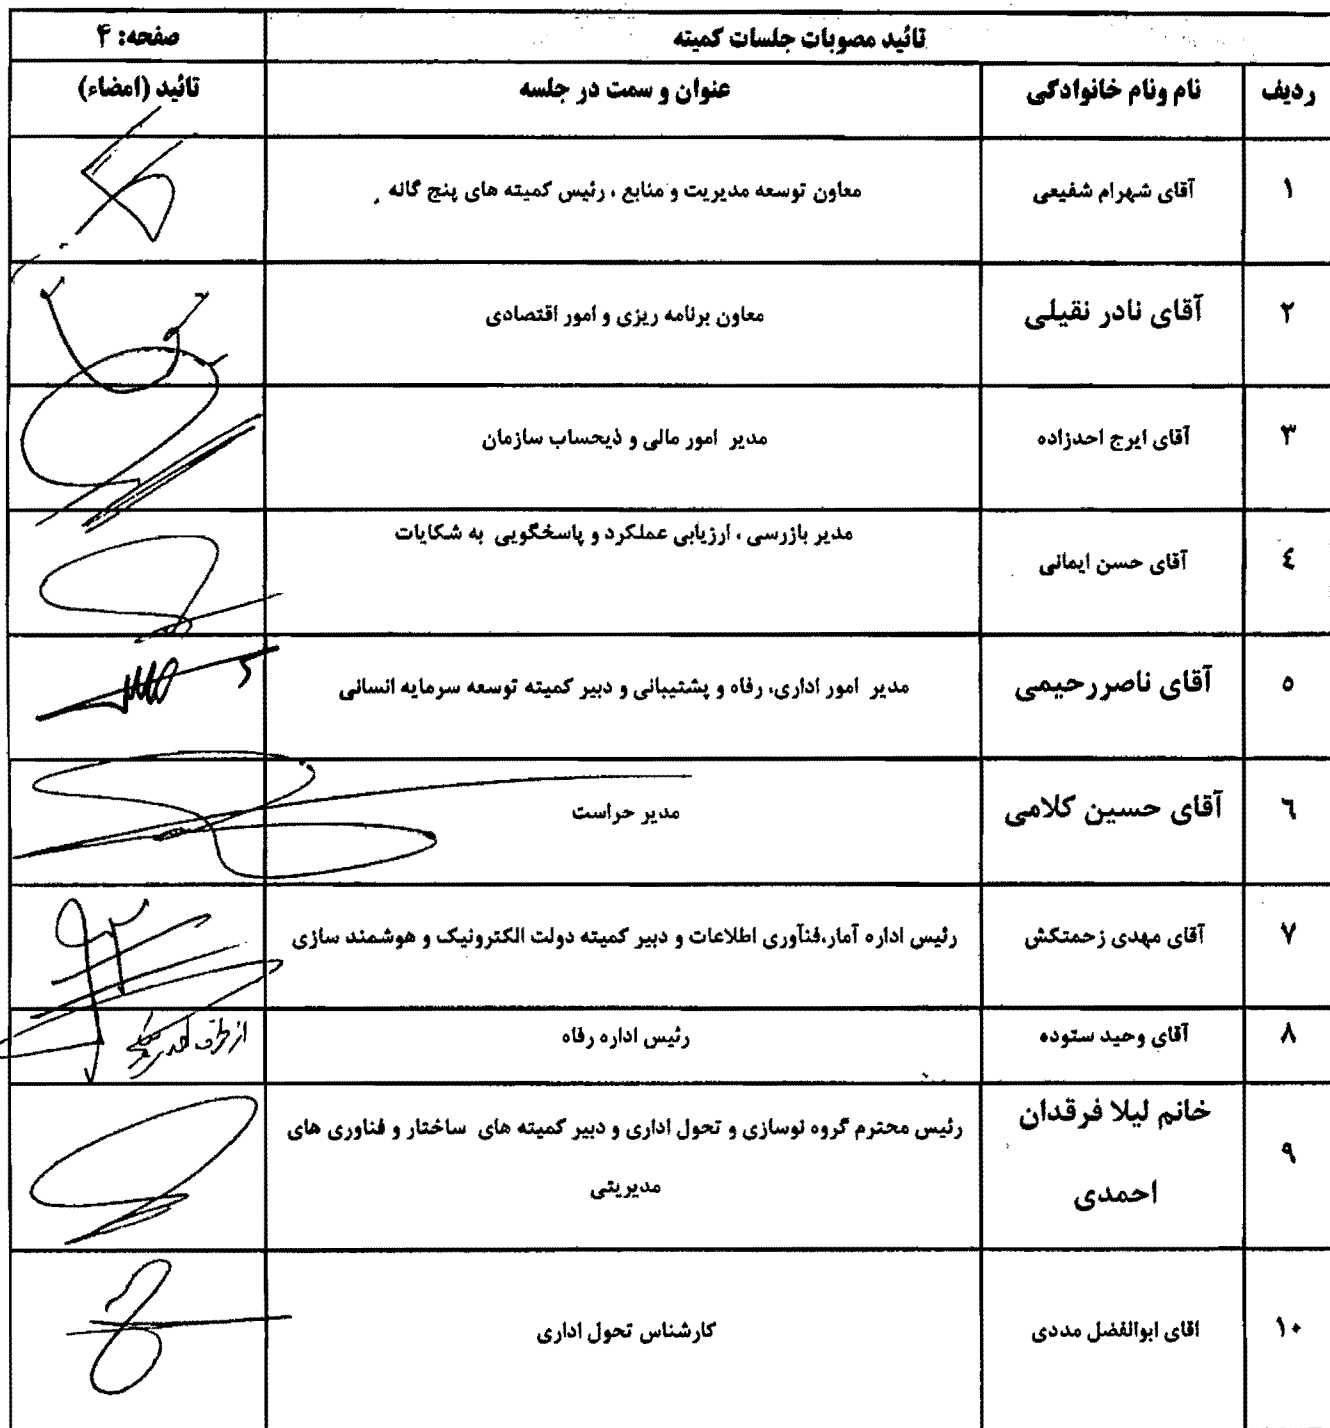 تائید مصوبات جلسات کمیته صفحه: ۴
ردیف نام ونام خانوادگی عنوان و سمت در جلسه تائید (امضاء)
۱ آقای شهرام شفیعی معاون توسعه مدیریت و منابع ، رئیس کمیته های پنج گانه
۲ آقای نادر نقیلی معاون برنامه ریزی و امور اقتصادی
۳ آقای ایرج احدزاده مدیر امور مالی و ذیحساب سازمان
٤ آقای حسن ایمانی مدیر بازرسی ، ارزیابی عملکرد و پاسخگویی به شکایات
٥ آقای ناصررحیمی مدیر امور اداری، رفاه و پشتیبانی و دبیر کمیته توسعه سرمایه انسانی
٦ آقای حسین کلامی مدیر حراست
۷ آقای مهدی زحمتکش رئیس اداره آمار،فنآوری اطلاعات و دبیر کمیته دولت الکترونیک و هوشمند سازی
۸ آقای وحید ستوده رئیس اداره رفاه از طرف
۹ خانم لیلا فرقدان احمدی رئیس محترم گروه نوسازی و تحول اداری و دبیر کمیته های ساختار و فناوری های
مدیریتی
۱۰ اقای ابوالفضل مددی کارشناس تحول اداری